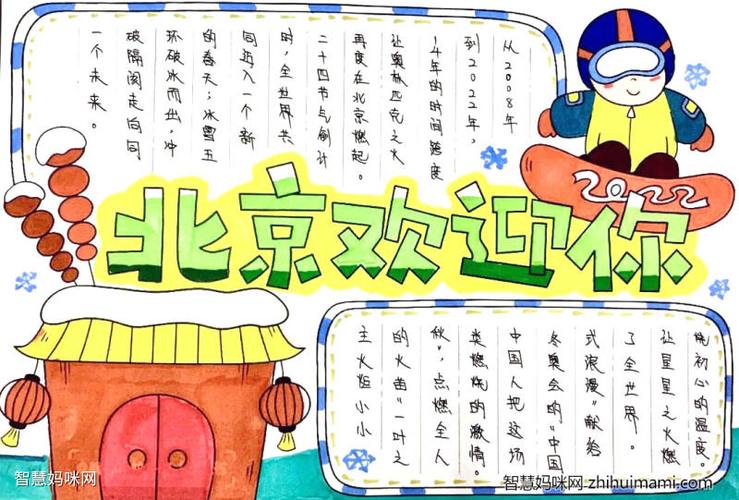 从2008年
到2022年，
14年的时间跨度
让奥林匹克之火
再度在北京燃起。
二十四节气倒计
时，全世界共
同进入一个新
的春天；冰雪五
环破冰而出，冲
破隔阂走向同
一个未来。
2022
北京欢迎你
主火炬小小
的火苗“一叶之
秋”，点燃全人
类燃烧的激情。
中国人把这场
冬奥会的“中国
式浪漫”献给
了全世界。
让星星之火燃
烧初心的温度。
智慧妈咪网
智慧妈咪网 zhihuimami.com